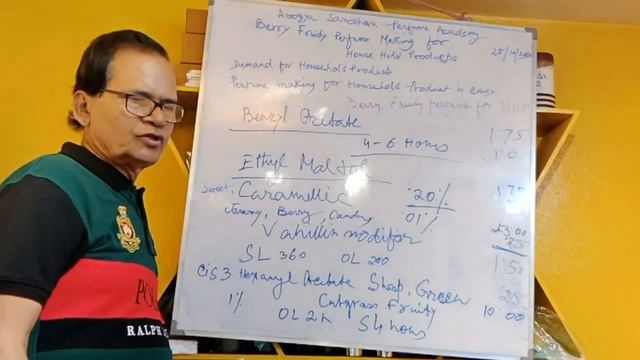 Arogya Sandhan Perfume Academy
Berry Fruity Perfume Making for
House Hold Products
25/10/
Demand for Household Products
Perfume making for Household Product is easy
Berry Fruity perfume for HHP
Benzyl Acetate
1.75
4-6 Hours
.10
Ethyl Maltol
Sweet, Caramellic
.20%
1.75
Jammy, Berry, Candy
.01%
Vanillin modifier
SL 360 OL 200
1.5
Cis 3 Hexanyl Acetate Sharp, Green
.25
1% Cutgrass Fruity
10.00
OL 2h S 4 hours
PO
RALPH